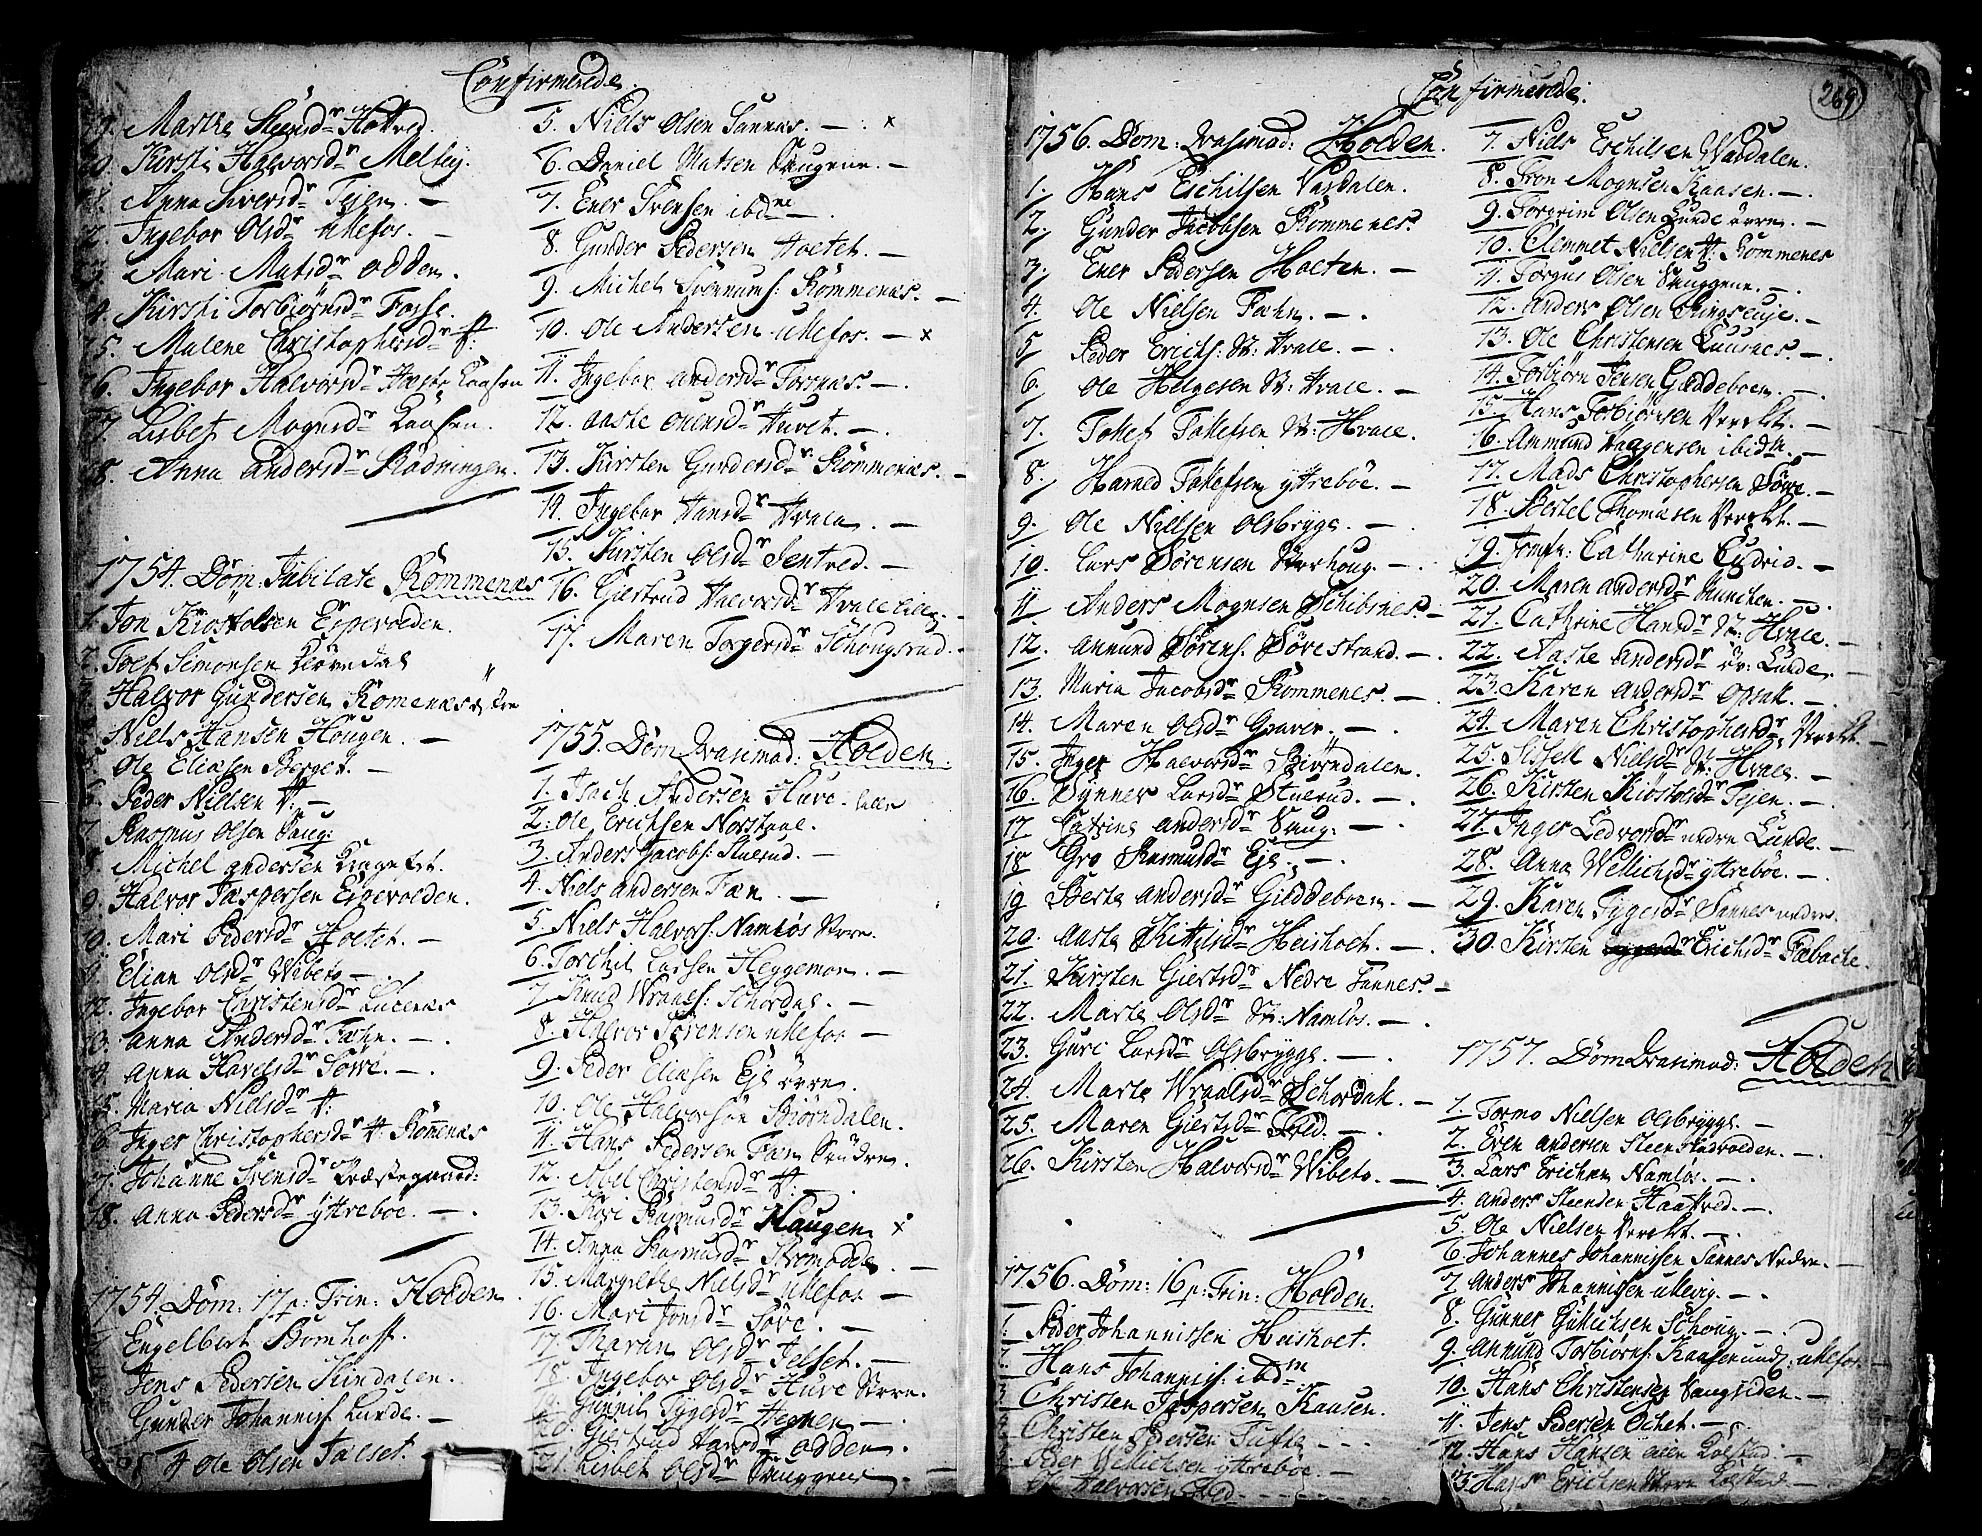 Confirmerede.
19. Marthe Steensdr Hottved.
20. Kirsti Halvorsdr Melbÿ.
Anna Siversdr Tejen. —
2. Ingebor Olsdr Ulefos. —
3. Mari Matisdr Odden.
4. Kirsti Torbiörnsdr Fosse.
5. Malene Christophersdr V:
6. Ingebor Halvorsdr Kaasen
7. Lisbet Mognsdr Kaasen.
8. Anna Andersdr Rödningen.
1754. Dom: Jubilate Rommenæs
1. Jon Kiostolsen Espevolden.
2. Toef Simonsen
Halvor Gundersen Romenæs
Niels Hansen Hougen. —
5. Ole Eliasen Berget. —
6. Peder Nielsen V. —
7. Rasmus Olsen Saug:
8. Michel Andersen
9. Halvor Jaspersen Espevolden.
10. Mari Pedersdr Hoetet. —
11. Elian Olsdr Wibeto —
12. Ingebor Christensdr
13. Anna Andersdr Fæhn. —
14. Anna Havelsdr Sove. —
15. Maria Nielsdr V:
16. Inger Christophersdr V: Romenæs
17. Johanne Svensdr Præstegaard:
18. Anna Pedersdr Ÿttreboe. —
1754. Dom: 17 p: Trin: Holden
1. Engelbert Bomhoff.
Jens Pedersen Kindalen.
Gunder Johannisf. Lunde. —
4 Ole Olsen Jalset.
5. Niels Olsen Sannes. — x
6. Daniel Matsen Saugene. —
7. Ener Svensen ibdne —
8. Gunder Pedersen Hoetet. —
9. Michel Rommenæs. —
10. Ole Andersen Ulefos. — x
11. Ingebor Andersdr Fossnæs. —
12. Aaste Huvet. —
13. Kirsten Gundersdr Rommenæs. —
14. Ingebor Hansdr Hvale. —
15. Kirsten Olsdr Jentved. —
16. Giertrud Halvorsdr Hvale —
17. Maren Torgersdr Schougsrud. —
1755. Dom Qvasimod: Holden.
1. Isach Andersen Huve.
2. Ole Erichsen Norstaae.
3. Anders Jacobs: Stuerud. —
4. Niels Andersen Fæn. —
5. Niels Halvors: Namløs
6. Torchil Larsen Heggemon. —
7. Knud Schordal. —
8. Halvor Sörensen Ulefos —
9. Peder Eliasen Eje övre.
10. Ole Halvorsen Biörndalen.
11. Hans Pedersen Fæn Söndre.
12. Abel Christensdr V: —
13. Kari Rasmusdr Haugen x
14. Anna Rasmusdr Stromodde. —
15. Margrethe Nielsdr Ulefos —
16. Mari Jonsdr Sove. —
17. Tharan Olsdr Jelset. —
18. Ingebor Olsdr Huve
19. Gunnil Tygesdr Hegnen —
20. Giertrud Larsdr Odden.
21. Lisbet Olsdr Sauggene. —
Confirmerede.
269
1756. Dom: Qvasimod: Holden.
1. Hans Eschilsen Vasdalen.
2. Gunder Jacobsen Rommenes.
3. Ener Pedersen Hoeten. —
4. Ole Nielsen Fæhn. —
5 Peder Erichs: St: Hvale. —
6. Ole Helgesen St: Hvale. —
7. Tokef Takefsen St: Hvale.
8. Harved Takefsen Ÿttreboe. —
9. Ole Nielsen Olsbrygge. —
10. Lars Sörensen —
11 Anders Mognsen Schibsnes —
12. Amund Sörens: Sövestrand. —
13. Maria Jacobsdr Rommenes. —
14. Maren Olsdr Graver. —
15. Inger Halvorsdr Biörndalen.
16. Synnev Larsdr Stuerud. —
17 Catrine Andersdr Saug: —
18 Gro Rasmusdr Eje. —
19 Berte Andersdr Gieddeboen. —
20. Aaste Kittilsdr Heishoet. —
21. Kirsten Giertsdr Nedre Sannes. —
22. Marte Olsdr St: Namløs. —
23. Guri Larsdr Olsbrygge. —
24. Marte Wraalsdr Schordal. —
25. Maren Giertsdr Fæd. —
26. Kirsten Halvorsdr Wibeto. —
1756. Dom: 16 p: Trin: Holden.
1. Peder Johannissen Heishoet.
2. Hans Johannis: ibdm
3 Christen Jaspersen Kaasen.
Christen Pedersen Tufte — —
Peder Wellichsen Ÿttreboe. —
Ole Halvorsen
7. Niels Eschilsen Wasdalen.
8. Tron Mognsen Kaasen. —
9. Torgrim Olsen Lunde övre. —
10. Clemmet Nielsen V: Rommenes
11. Torgus Olsen Sauggene. —
12. Anders Olsen Ringseuje. —
13. Ole Christensen —
14. Torbjörn Jensen Gieddeboen. —
15. Hans Torbiörnsen Verckt. —
16. Ammund Aagensen ibidm. —
17. Mads Christophersen Söve. —
18. Bertel Thomasen Verckt. —
19. Jomfr: Catharine —
20. Maren Andersdr —
21. Cathrine Hansdr St: Hvale. —
22. Aaste Andersdr öv: Lunde. —
23. Karen Andersdr Opsal. —
24. Maren Christophersdr Verckt. —
25. Sissell Nielsdr St: Hvale. —
26. Kirsten Kiöstolsdr Tejen. —
27. Inger Ledvorsdr nedre Lunde. —
28. Anna Wellichsdr Ÿttreböe. —
29. Karen Tygesdr Sannes nedre.
30. Kirsten Erichsdr Fæbacke.
1757. Dom Qvasimod: Holden
1. Tormo Nielsen Olsbrygge. —
2. Even Andersen Steenstadvolden. —
3. Lars Erichsen Namløs. —
4. Anders Steensen Haatved. —
5. Ole Nielsen Verckt. —
6. Johannes Johannissen Sannes Nedre. —
7. Anders Johannissen Ulevig. —
8. Gunner Gulichsen Schoug. —
9. Amund Torbiörns: Kaasen und: Ulefos —
10. Hans Christensen Saugsiden. —
11. Jens Pedersen Ochet. —
12. Hans Hansen Kolstad. —
13. Hans Erichsen Kolstad. —